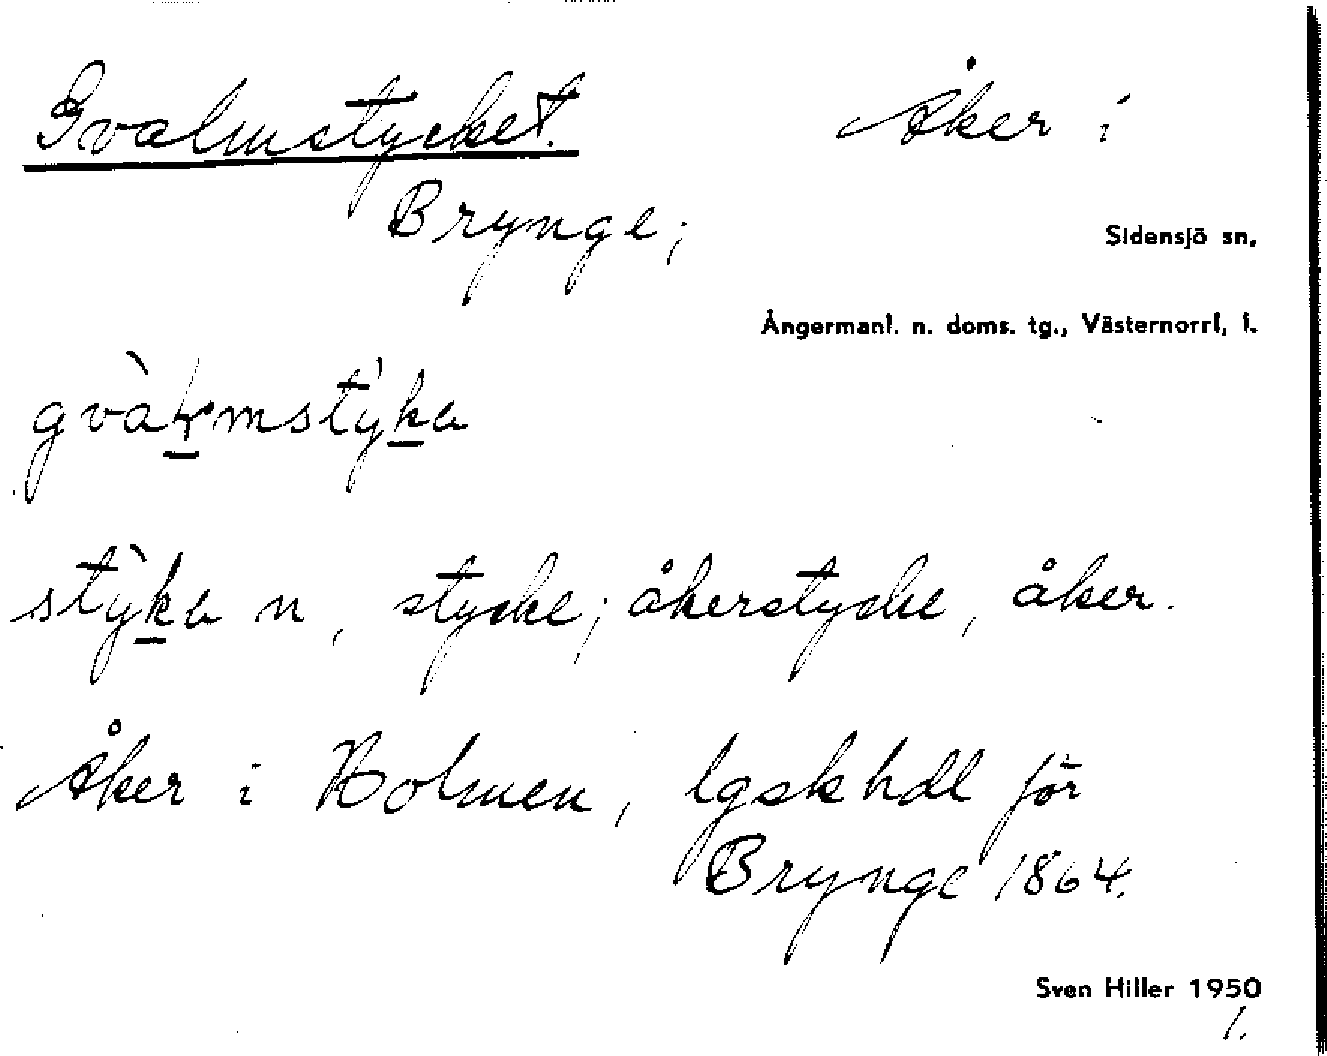 Gvalmstycket. Åker i
Brynge;
Sidensjö sn.
Ångermanl. n. doms. tg., Västernorrl. l.
styka n, stycke; åkerstycke, åker.
Åker i Holmen, lgskhdl för
Brynge 1864.
Sven Hiller 1950
1.